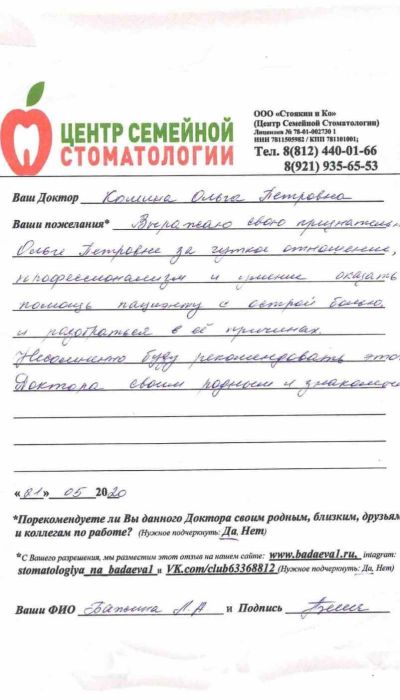 ЦЕНТР СЕМЕЙНОЙ
СТОМАТОЛОГИИ
ООО «Стоякин и Ко»
(Центр Семейной Стоматологии)
Лицензия № 78-01-002730 1
ИНН 7811505982 / КПП 781101001;
Тел. 8(812) 440-01-66
8(921) 935-65-53
Ваш Доктор Комина Ольга Петровна
Ваши пожелания* Выражаю свою признательн
Ольге Петровне за чуткое отношение,
профессионализм и умение оказать
помощь пациенту с острой болью
и разобраться в её причинах.
Несомненно буду рекомендовать этог
Доктора своим родным и знакомым
«01» 05 2020
*Порекомендуете ли Вы данного Доктора своим родным, близким, друзьям
и коллегам по работе? (Нужное подчеркнуть: Да, Нет)
*С Вашего разрешения, мы разместим этот отзыв на нашем сайте: www.badaeva1.ru, intagram:
stomatologiya_na_badaeva1 и VK.com/club63368812 (Нужное подчеркнуть: Да, Нет)
Ваши ФИО Л.А и Подпись